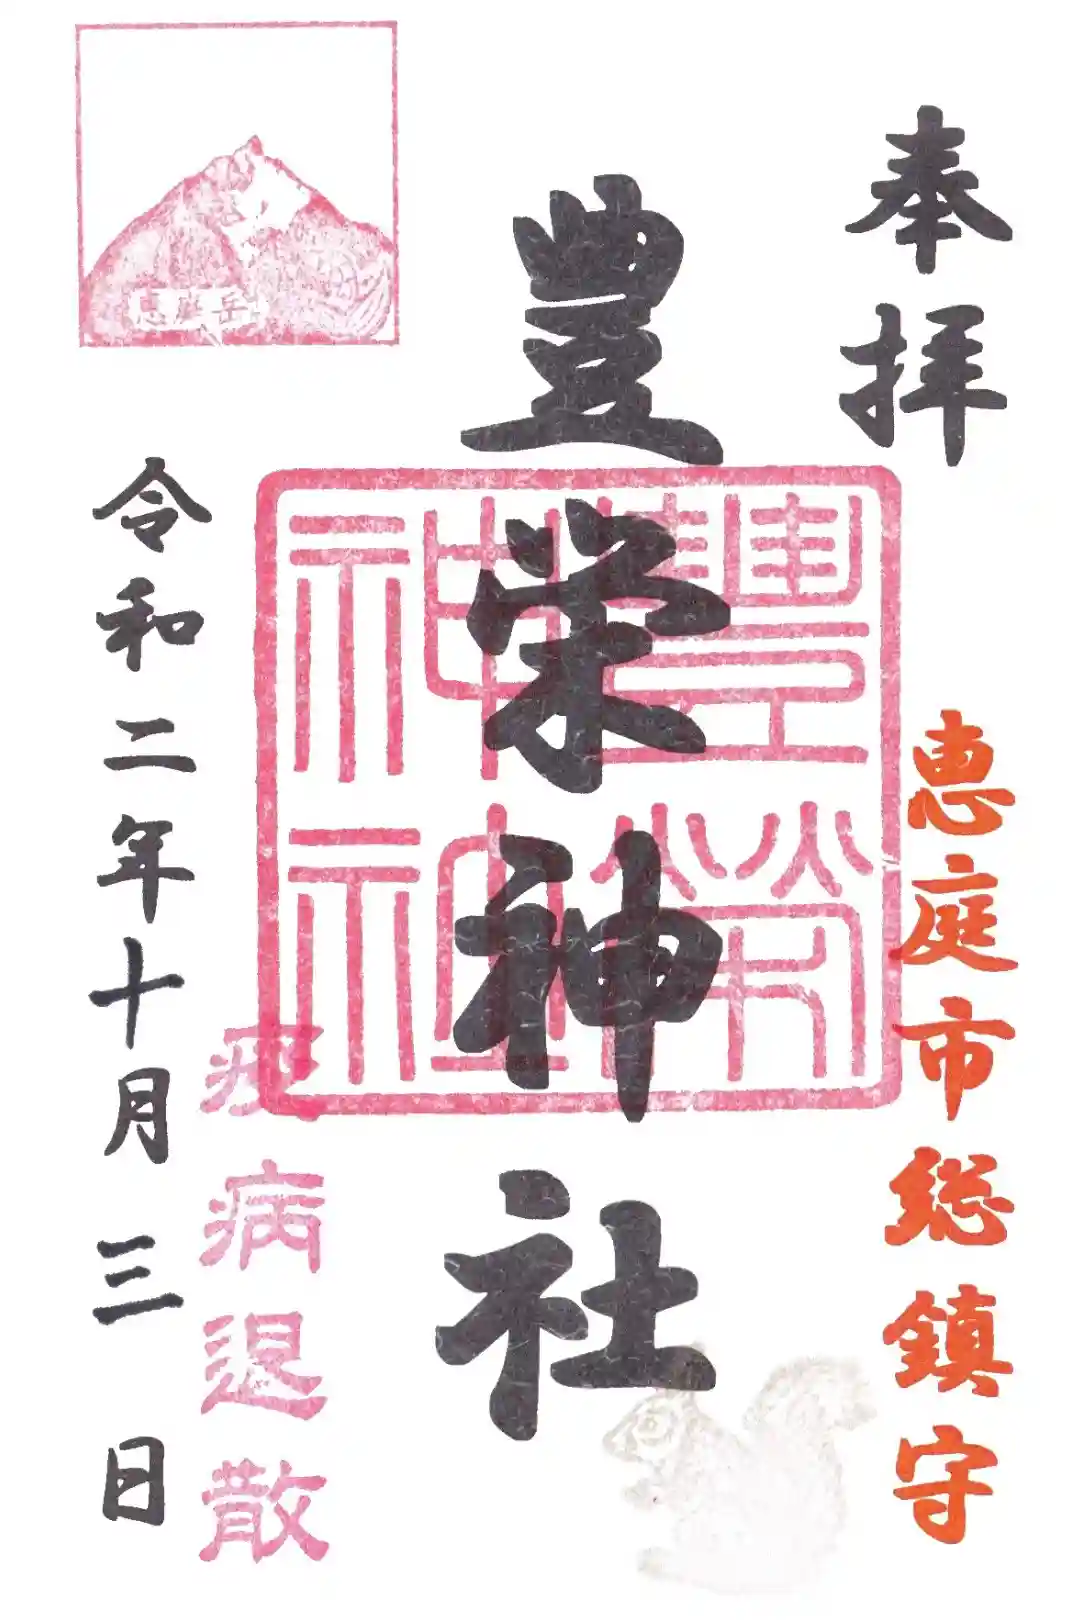 奉拝
恵庭市総鎮守
豊栄神社
豊榮神社神社
恵庭岳
疫病退散
令和二年十月三日